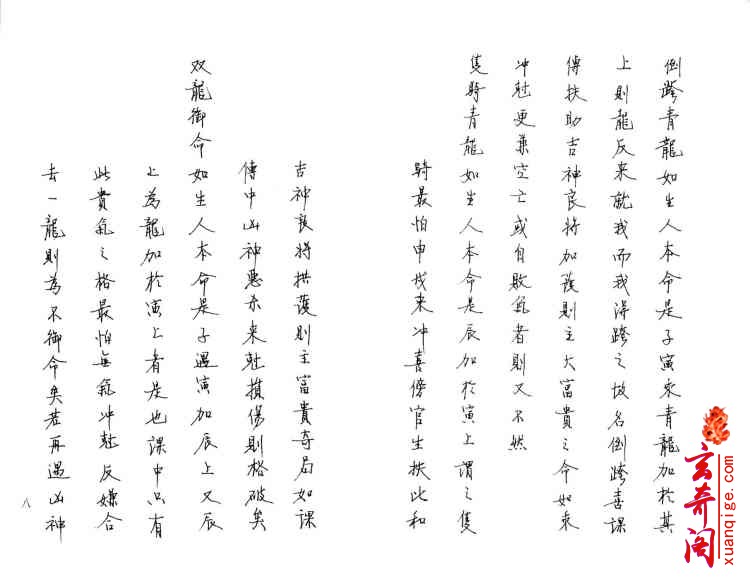 倒跨青龍如生人本命是子寅來青龍加於其
上則龍反来就我而我得跨之故名倒跨喜課
傳扶助吉神良將加護則主大富貴之命如来
冲尅更兼空亡或自敗氣者則又不然
隻騎青龍如生人本命是辰加於寅上謂之隻
騎最怕申戌来冲喜傍官生扶此和
吉神良将拱護則主富貴奇局如課
傳中凶神惡杀来尅損傷則格破矣
双龍御命如生人本命是子遇寅加辰上又辰
上為龍加於寅上者是也課中只有
此貴氣之格最怕無氣冲尅反嫌合
去一龍則為不御命矣若再遇凶神
八
玄奇阁
xuanqige.com